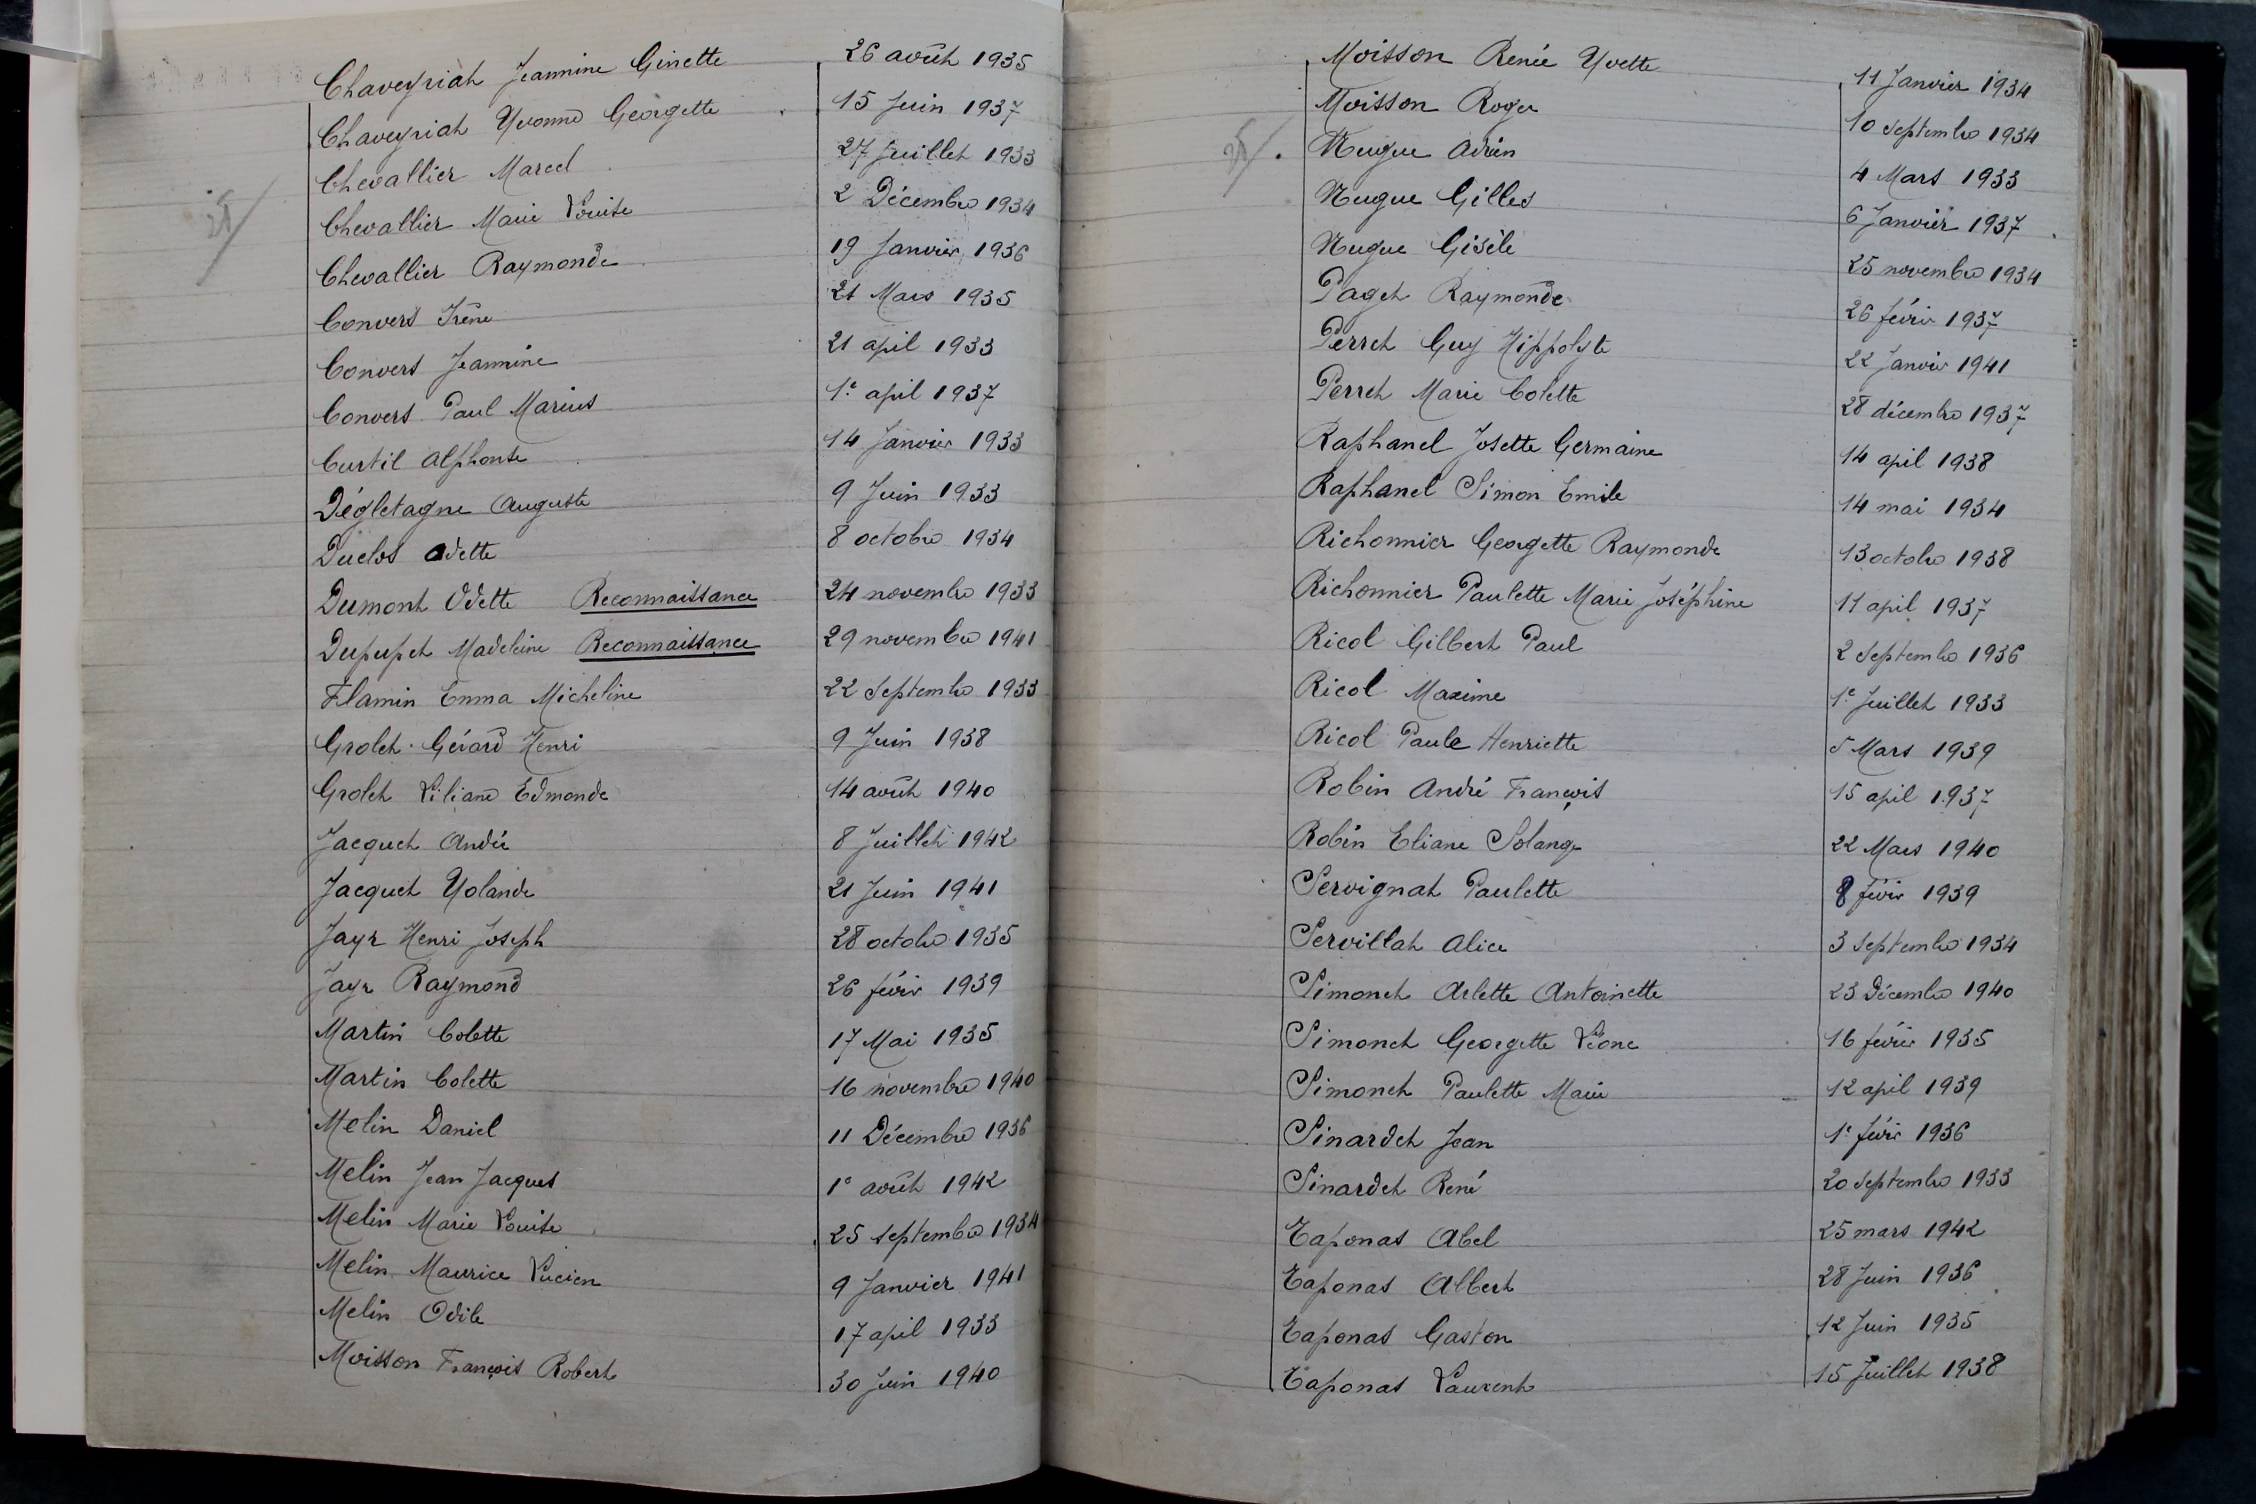 Chaveyriat Jeannine Ginette 26 août 1935
Chaveyriat Yvonne Georgette 15 Juin 1937
Chevallier Marcel 27 Juillet 1933
Chevallier Marie Louise 2 Décembre 1934
Chevallier Raymonde 19 Janvier 1936
Convers Irène 21 Mars 1935
Convers Jeannine 21 april 1933
Convers Paul Marius 1e april 1937
Curtil Alphonse 14 Janvier 1933
Dégletagne Auguste 9 Juin 1933
Duclos Odette 8 octobre 1934
Dumont Odette Reconnaissance 24 novembre 1933
Dupupet Madeleine Reconnaissance 29 novembre 1941
Flamin Emma Micheline 22 Septembre 1933
Grolet Gérard Henri 9 Juin 1938
Grolet Liliane Edmonde 14 août 1940
Jacquet André 8 Juillet 1942
Jacquet Yolande 21 Juin 1941
Jayr Henri Joseph 28 octobre 1935
Jayr Raymond 26 févrir 1939
Martin Colette 17 Mai 1935
Martin Colette 16 novembre 1940
Melin Daniel 11 Décembre 1936
Melin Jean Jacques 1e août 1942
Melin Marie Louise 25 septembre 1934
Melin Maurice Lucien 9 Janvier 1941
Melin Odile 17 april 1933
Moisson François Robert 30 Juin 1940
Moisson Renée Yvette 11 Janvier 1934
Moisson Roger 10 septembre 1934
Nugue Adrien 4 Mars 1933
Nugue Gilles 6 Janvier 1937
Nugue Gisèle 25 novembre 1934
Paget Raymonde 26 févrir 1937
Perret Guy Hippolyte 22 Janvier 1941
Perret Marie Colette 28 décembre 1937
Raphanel Josette Germaine 14 april 1938
Raphanel Simon Emile 14 mai 1934
Richonnier Georgette Raymonde 13 octobre 1938
Richonnier Paulette Marie Joséphine 11 april 1937
Ricol Gilbert Paul 2 Septembre 1936
Ricol Maxime 1e Juillet 1933
Ricol Paule Henriette 5 Mars 1939
Robin André François 15 april 1937
Robin Eliane Solange 22 Mars 1940
Servignat Paulette 8 févrir 1939
Servillat Alice 3 Septembre 1934
Simonet Arlette Antoinette 23 Décembre 1940
Simonet Georgette Léone 16 févrir 1935
Simonet Paulette Marie 12 april 1939
Sinardet Jean 1e févrir 1936
Sinardet René 20 Septembre 1933
Taponas Abel 25 mars 1942
Taponas Albert 28 Juin 1936
Taponas Gaston 12 Juin 1935
Taponas Laurent 15 Juillet 1938